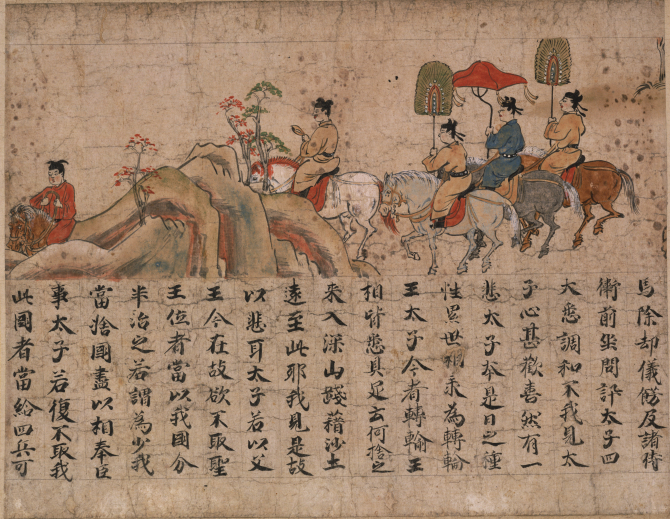 馬除却儀飾及諸侍
衛前坐問訊太子四
大悉調和不我見太
子心甚歡喜然有一
悲太子本是日之種
性累世相承為轉輪
王太子今者轉輪王
相皆悉具足云何捨之
來入深山踐藉沙土
遠至此耶我見是故
以悲耳太子若以父
王今在故欲不取聖
王位者當以我國分
半治之若謂為少我
當捨國盡以相奉臣
事太子若復不取我
此國者當給四兵可